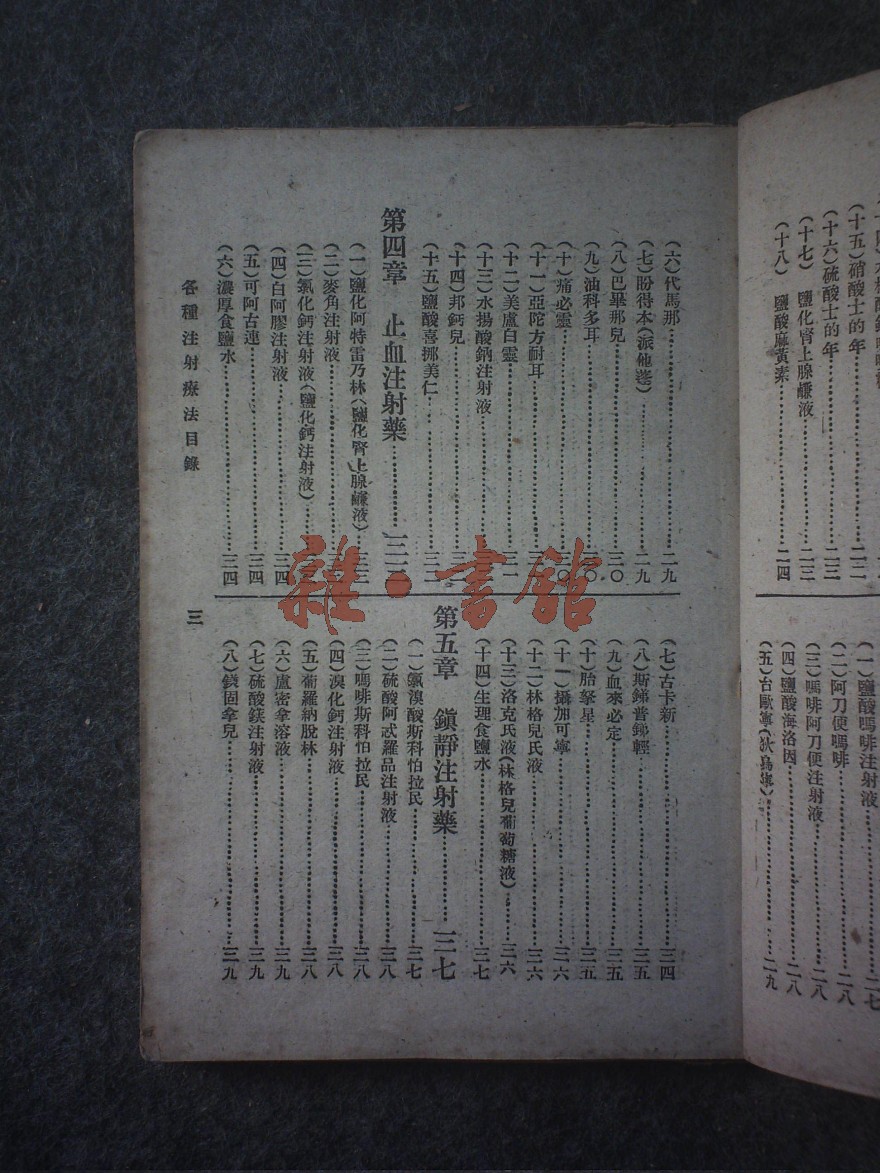 硝酸士的年……二二
(十六)硫酸士的年……二三
(十七) 鹽化腎上腺鹻液……二三
(十八) 鹽酸麻黃素……二四
(一)鹽酸嗎啡注射液……二七
(二)阿刀便嗎啡……二八
(三)嗎啡阿刀便注射液……二八
(四)鹽酸海洛因……二八
(五)台歐寧……二九
(六)代馬那……二九
(七)盼得本(派他蓬)……二九
(八)巴畢那兒……三〇
(九)油科多耳……三〇
(十)痛必靈……三〇
(十一)亞陀方耐耳……三一
(十二)美盧白靈……三一
(十三)水揚酸鈉注射液
(十四)邦鈣兒
(十五)鹽酸喜挪美仁……三二
第四章 止血注射藥……三二
(一)鹽化阿特雷乃林(鹽化腎上腺鹻液)
(二)麥角注射液
(三)氯化鈣注射液(鹽化鈣注射液)
(四)白阿膠注射液……三四
(五)可阿古連……三四
(六)濃厚食鹽水……三四
(七)古卡新……三四
(八)斯銻普銻輕……三五
(九)血來必定……三五
(十)胎孥星……三五
(十一)攝加可寧……三六
(十二)林格兒氏液……三六
(十三)洛克氏液(林格兒葡萄糖液)……三六
(十四)生理食鹽水……三七
第五章 鎮靜注射藥……三七
(一)氫溴酸斯科怕拉民……三七
(二)硫酸阿忒羅品注射液……三八
(三)嗎啡斯科怕拉民……三八
(四)溴化鈣注射液……三八
(五)葡羅納脫林……三八
(六)盧密拿溶液……三九
(七)硫酸鎂注射液……三九
(八)錢固拿兒……三九
各種注射療法目錄
三
雜·書館